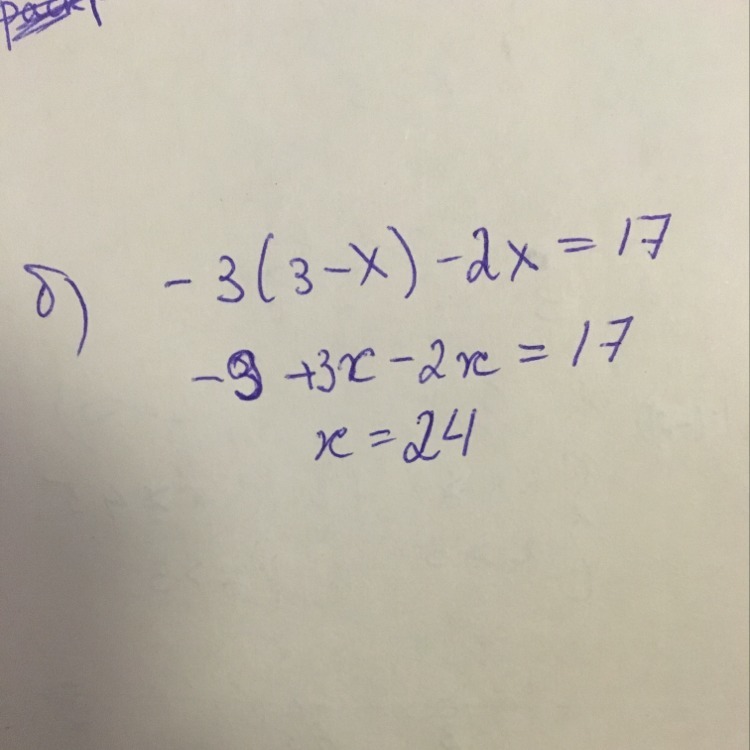 б) -3(3-x)-2x=17
-9+3x-2x=17
x=24